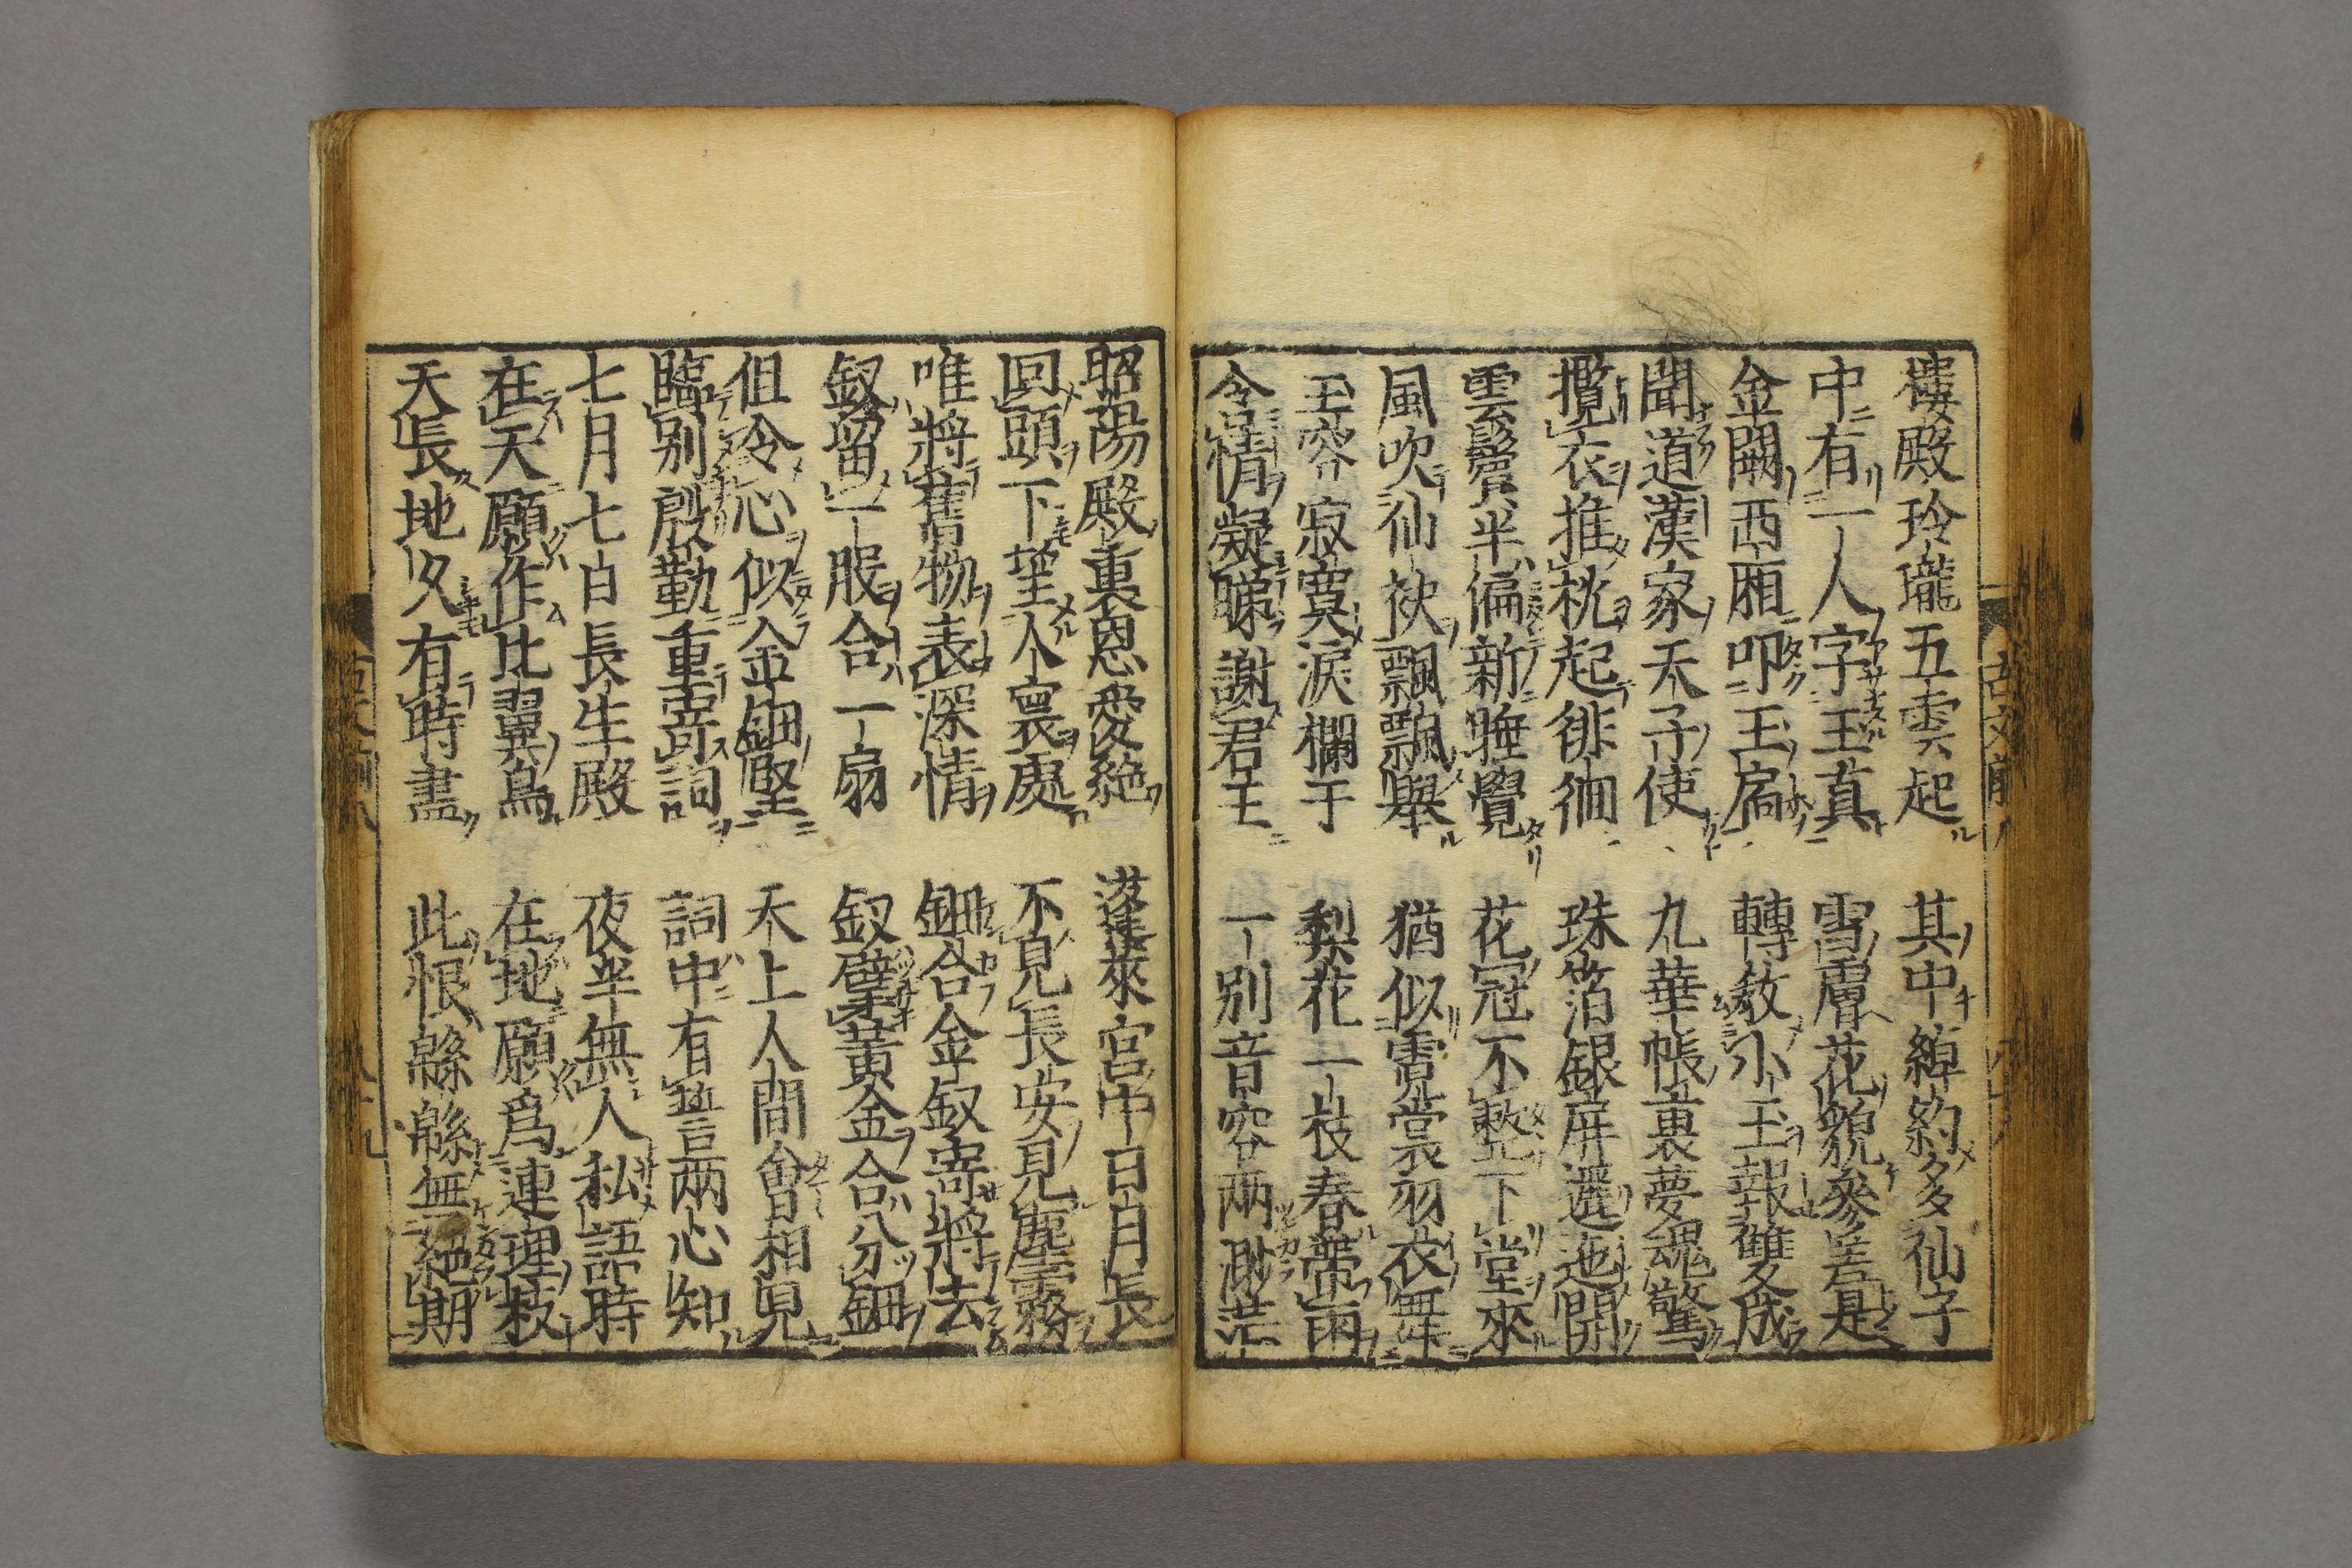 樓殿玲瓏五雲起　其中綽約多仙子
中有一人字玉真　雪膚花貌參差是
金闕西廂叩玉扃　轉敎小玉報雙成
聞道漢家天子使　九華帳裏夢魂驚
攬衣推枕起徘徊　珠箔銀屏邐迤開
雲鬢半偏新睡覺　花冠不整下堂來
風吹仙袂飄飄舉　猶似霓裳羽衣舞
玉容寂寞淚欄干　梨花一枝春帶雨
含情凝睇謝君王　一別音容兩渺茫
昭陽殿裏恩愛絶　蓬萊宮中日月長
回頭下望人寰處　不見長安見塵霧
唯將舊物表深情　鈿合金釵寄將去
釵留一股合一扇　釵擘黃金合分鈿
但令心似金鈿堅　天上人間會相見
臨別殷勤重寄詞　詞中有誓兩心知
七月七日長生殿　夜半無人私語時
在天願作比翼鳥　在地願爲連理枝
天長地久有時盡　此恨緜緜無絕期